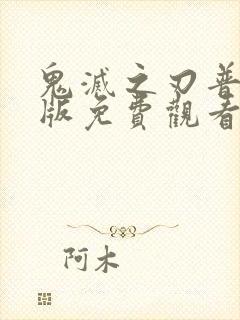 鬼滅之刃普
版免費觀看
阿木